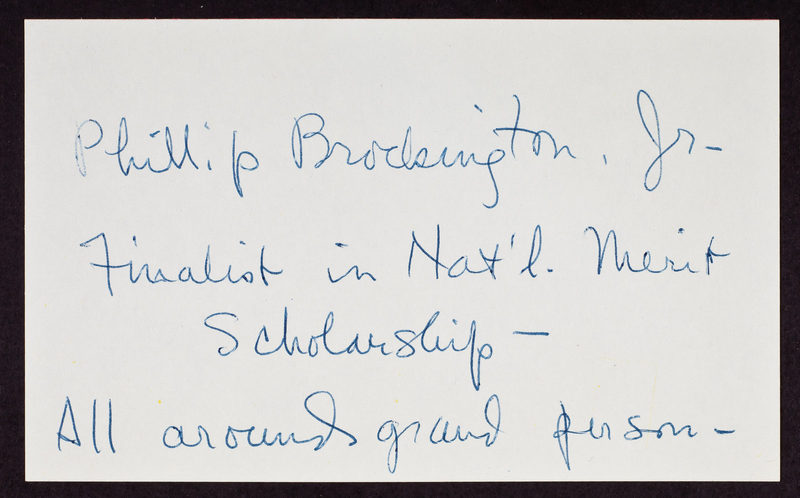 Phillip Brockington, Jr-
Finalist in Nat'l. Merit
Scholarship -
All around grand person -